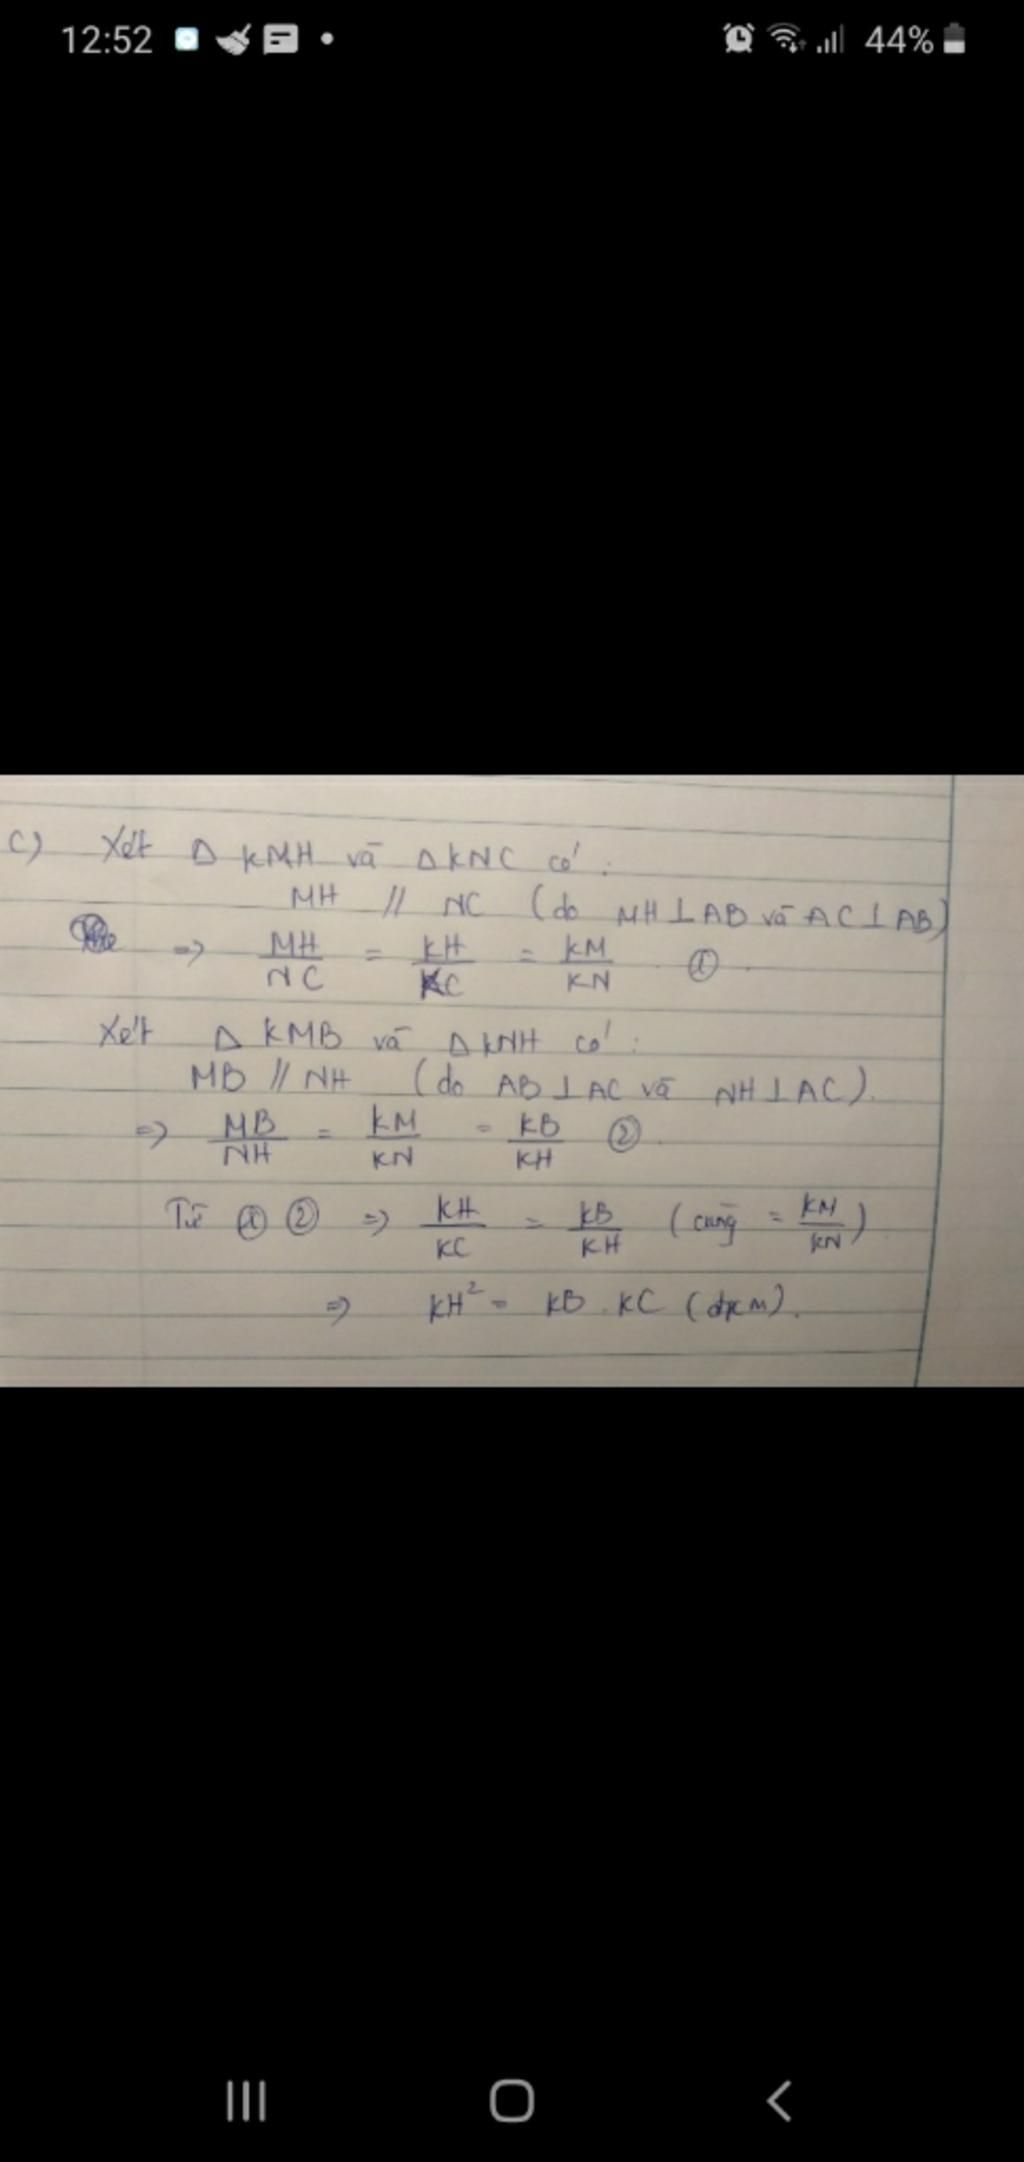 12:52 44%
c) Xét Δ KMH và Δ KNC có:
MH // NC (do MH ⊥ AB và AC ⊥ AB)
=> MH/NC = KH/KC = KM/KN ①
Xét Δ KMB và Δ KNH có:
MB // NH (do AB ⊥ AC và NH ⊥ AC).
=> MB/NH = KM/KN = KB/KH ②
Từ ① ② => KH/KC = KB/KH (cùng = KM/KN)
=> KH² = KB . KC (đpcm).